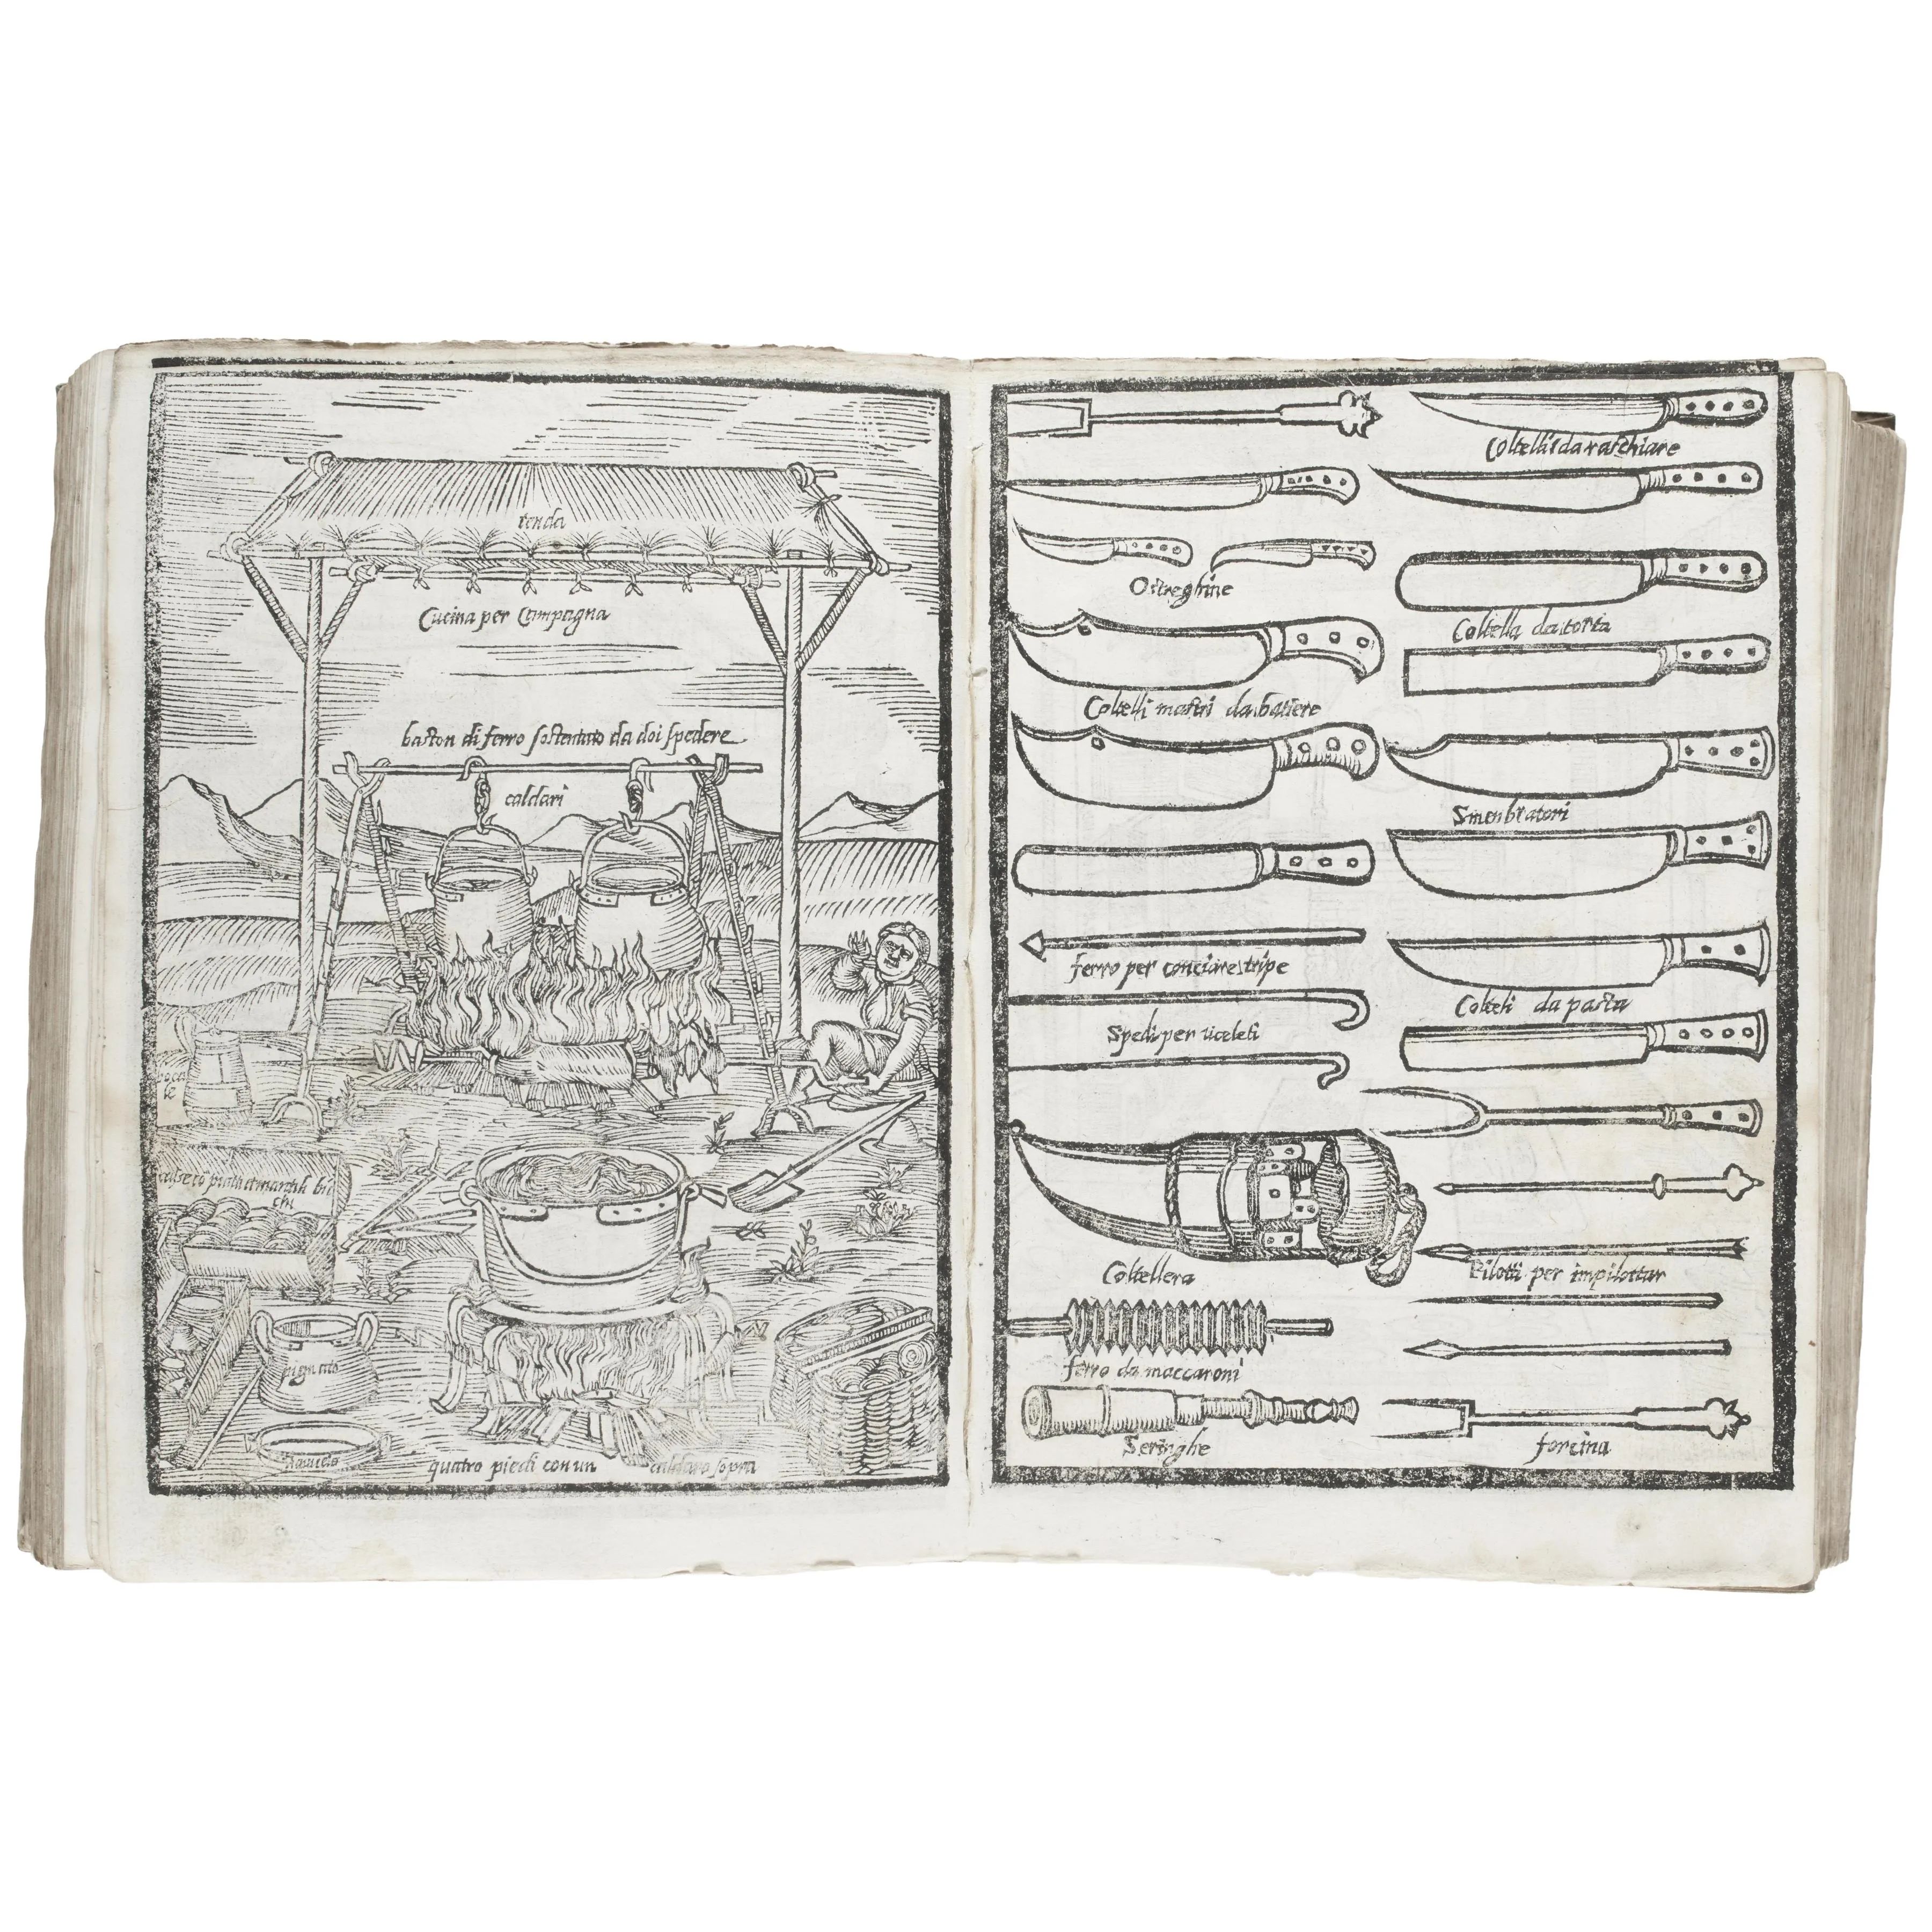 tenda
Cucina per Campagna
baston di ferro sostentato da doi spedere
caldari
pignato
quatro piedi con un caldaro sopra
Coltelli da raschiare
Ostreghine
Coltella da torta
Coltelli mastri da batiere
Smenbratori
ferro per conciare tripe
Colteli da pasta
Spedi per uceleti
Coltellera
Pilotti per impilottar
ferro da maccaroni
Seringhe
forcina